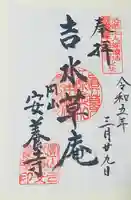 奉拝
令和五年
三月廿九日
吉水草庵
円山
安養寺